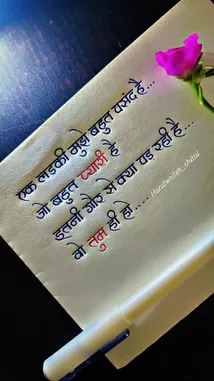 एक लडकी मुझे बहुत पसंद है...
जो बहुत प्यारी है
इतनी गोर से क्या पड रही है...
वो तुम ही हो.....
Handwriter_shital